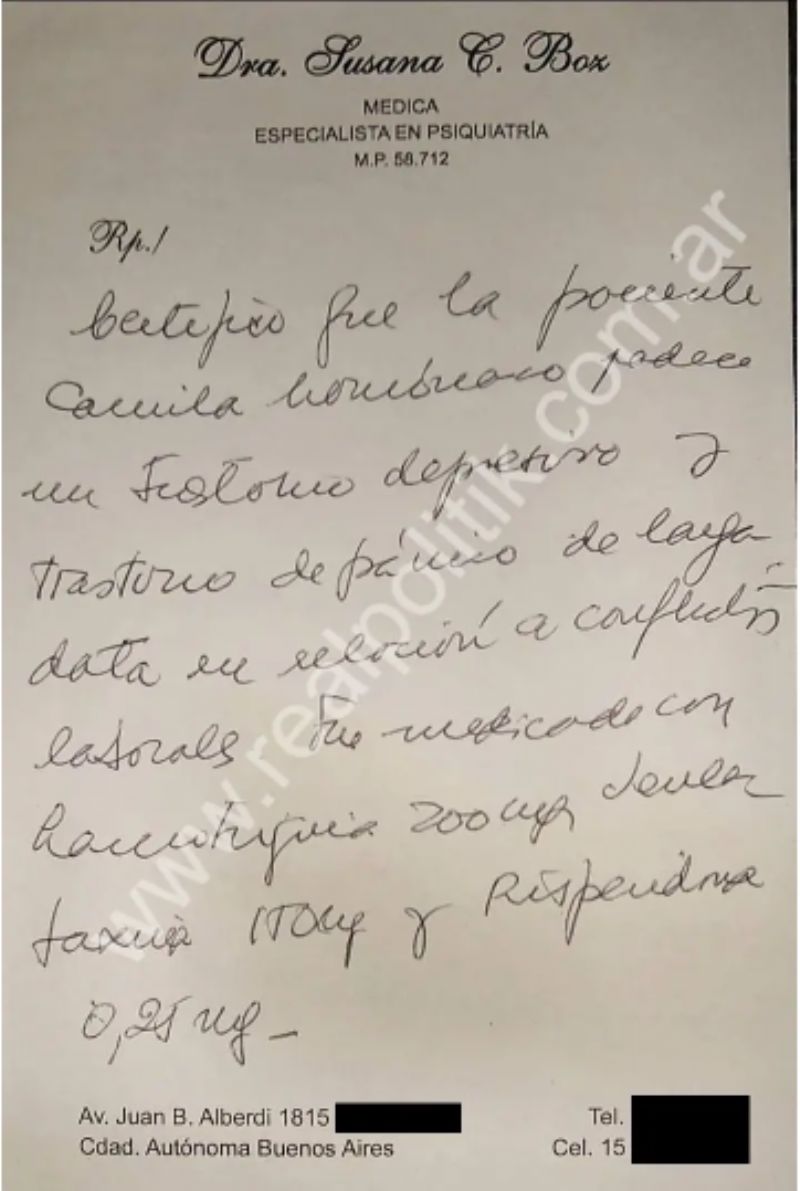 Dra. Susana C. Boz
MEDICA
ESPECIALISTA EN PSIQUIATRÍA
M.P. 58.712
Rp./
Certifico que la paciente
Camila homónaco padece
un trastorno depresivo y
trastorno de pánico de larga
data en relación a conflictos
laborales Fue medicada con
Lamotrigina 200 mg, 
faxina 150mg y Risperidona
0,25 mg -
www.realpolitik.com.ar
Av. Juan B. Alberdi 1815
Tel.
Cdad. Autónoma Buenos Aires
Cel. 15